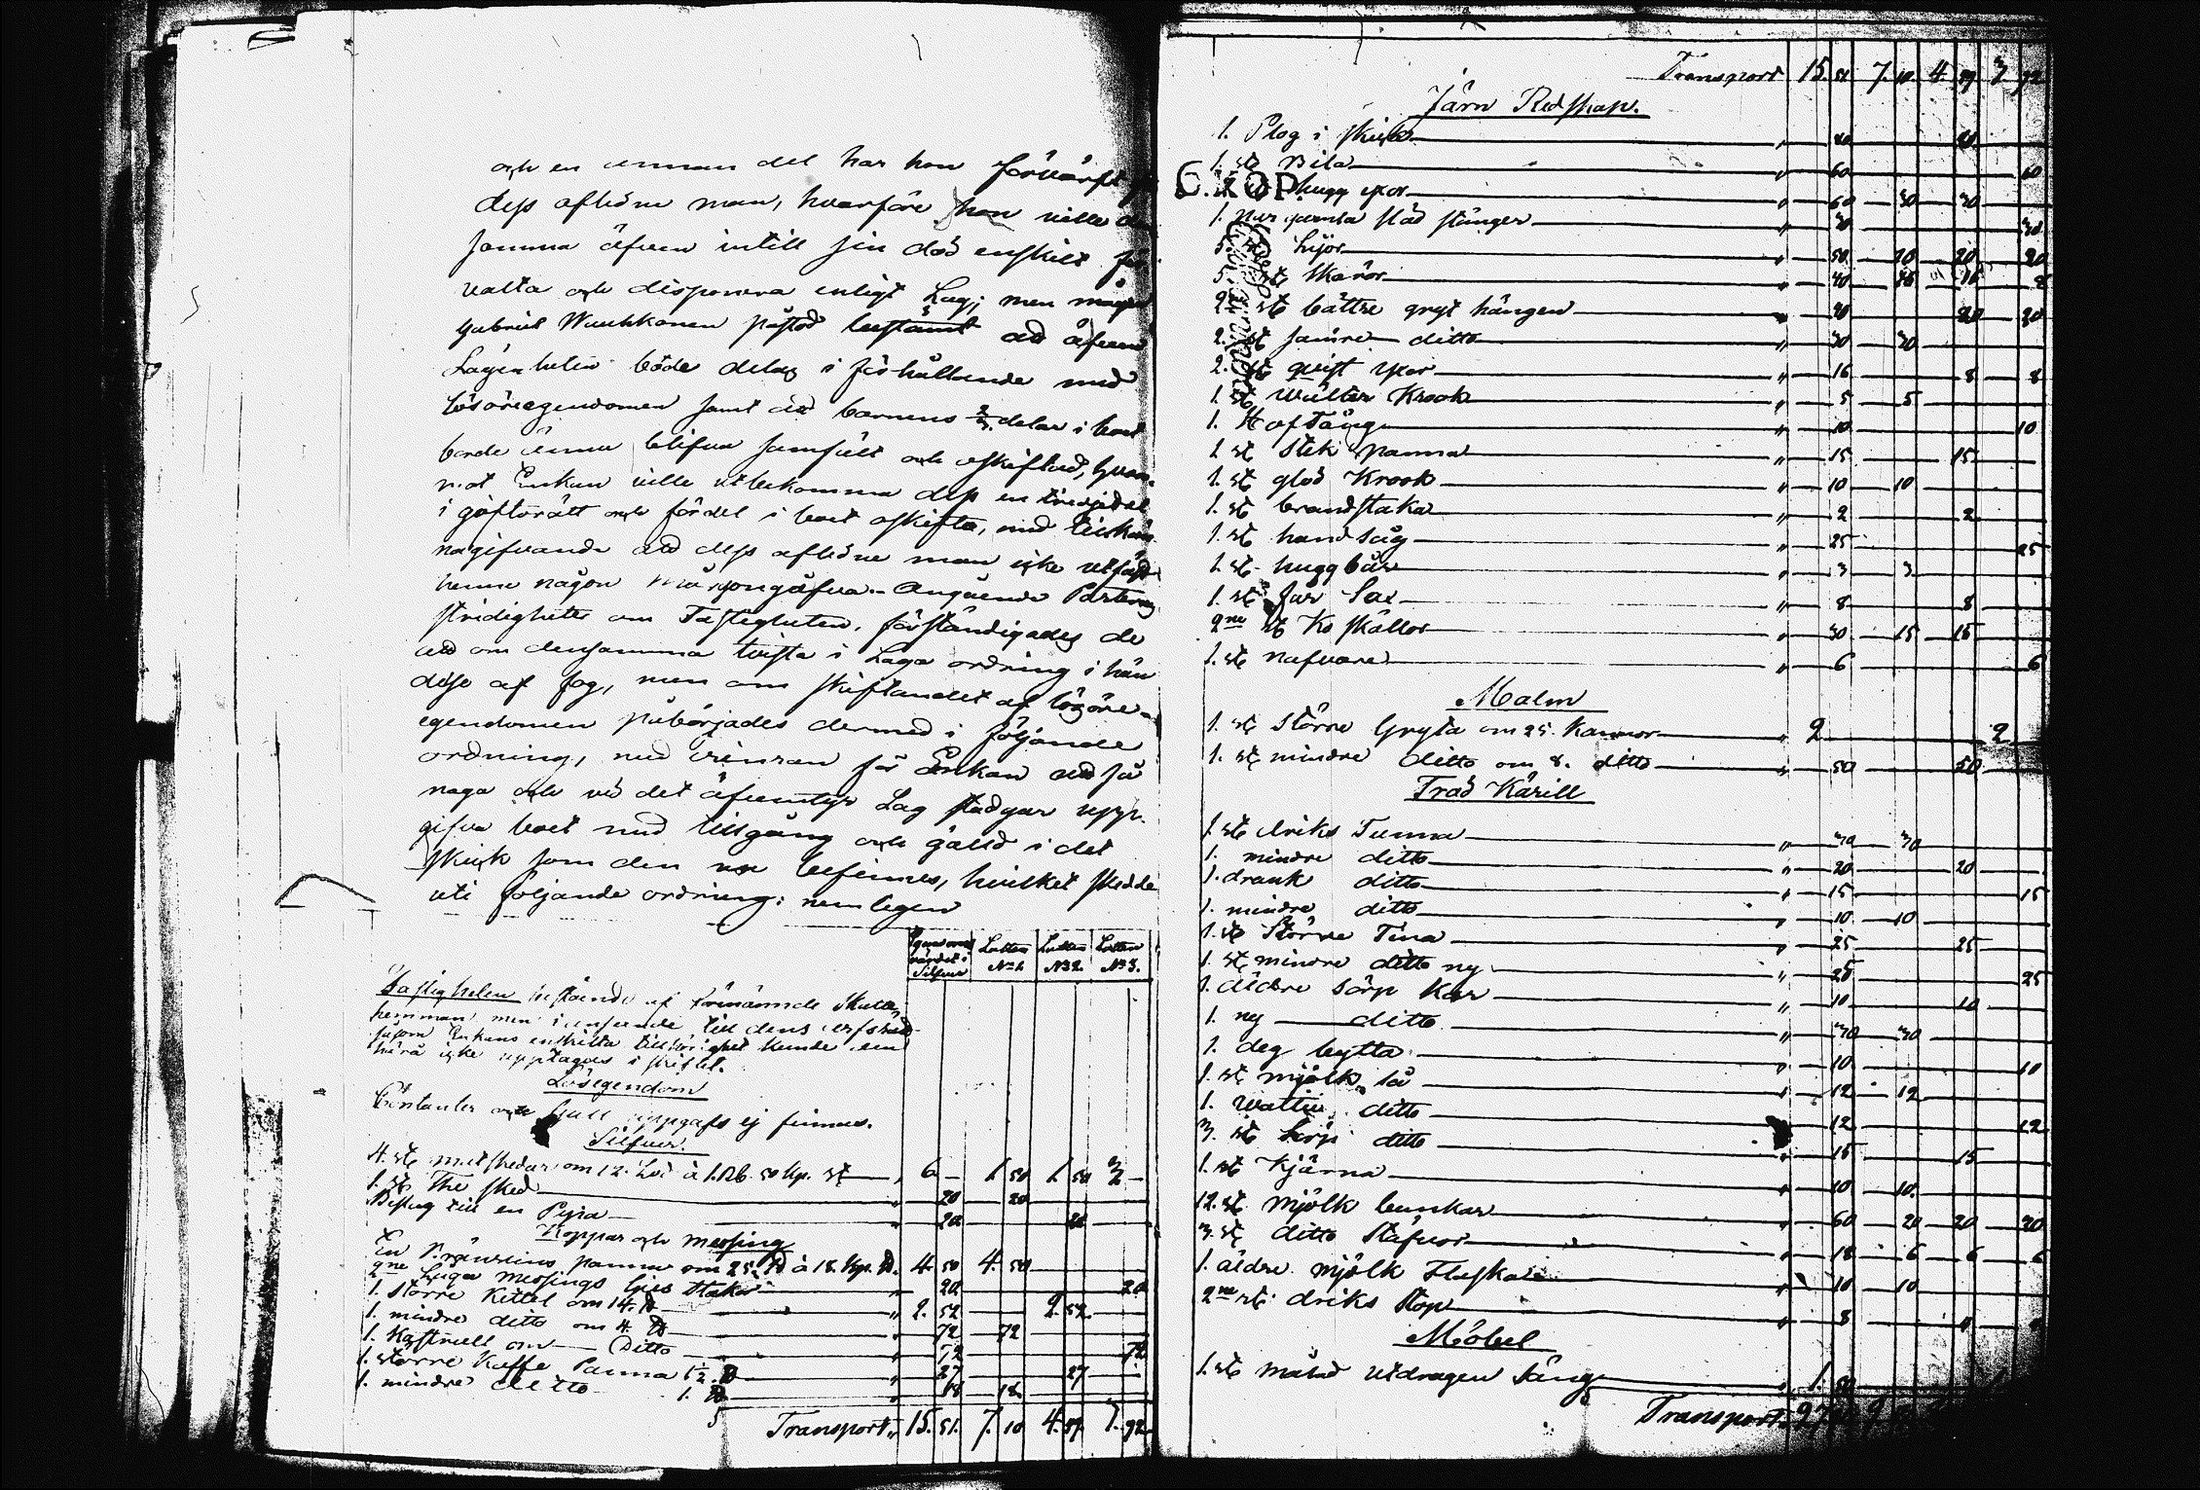 och en annan del har hon förvärft
dess aflidne man, hvarföre hon ville
samma äfven intill sin död enskilt för
valta och disponera enligt Lag; men mågen
Gabriel påstod bestämt att äfven
Lägenheten böde delas i förhållande med
lösöreegendomen samt att barnens 2/3 delar i boet
borde ännu blifva samfält och oskiftad, hvar-
mot Enkan ville utbekomma dess en tredjedel
i giftorätt och fördel i boet oskifta, med tillkän
nagifvande att dess aflidne man icke utfäst
henne någon morgongåfva. Angående Parternas
stridigheter om Fastigheten, förständigades de
att om densamma tvista i Laga ordning i hän
delse af fog, men om skiftandet af lösöre-
egendomen påbörjades dermed i följande
ordning, med erinran för Enkan att så
noga och vid det äfventyr Lag stadgar upp-
gifva boet med tillgång och gäld i det
skick som den nu befinnes, hvilket skedde
uti följande ordning: nemligen
Egendomens värdet i Silfver Lotten No 1. Lotten No 2. Lotten No 3.
Fastigheten bestående af förenämnde Skatte
hemman, men i anseende till dens
såsom Enkans enskilta tillhörighet kunde
härå icke upptagas i skiftet.
Lösegendom
Contanter och Guld uppgafs ej finnas.
Silfver.
4. st. matskedar om 12. Lod à 1. Rb. 50 kp. st. 6 – 1 50 1 50 3 –
1. st. The sked " 20 20
Beslag till en Pipa " 20 20
Koppar och messing
En Bränvins panna om 25. ℔ à 18. kp. ℔. 4. 50 4. 50
2ne Låga messings ljus stakar " 20 20
1. större Kittel om 14. ℔ " 2. 52 2. 52
1. mindre ditto om 4. ℔ " 72 72
1. Kastrull om Ditto " 72 72
1. större Kaffe Panna 1½ ℔ " 27 27
1. mindre ditto 1. ℔ " 18 18
Transport " 15. 51. 7. 10 4. 49. 3. 92
Transport 15. 51 7. 10 4. 49 3 92
Järn Redskap.
1. Plog i skick " 20 20
1. st Bila " 60 60
hugg yxor " 60 30 30
1. par gamla släd stänger " 30 30
5. st Lijor " 50 10 20 20
5. st Skäror " 40 16 16 8
2ne st bättre gryt hängen " 40 20 20
2. st sämre ditto " 30 30
2. st qvist yxor " 16 8 8
1. st Wälter Krook " 5 5
1. Hoftång " 10 10
1. st Stek panna " 15 15
1. st glöd Krook " 10 10
1. st brandstaka " 2 2
1. st handsåg " 25 25
1. st hugg bår " 3 3
1. st får Sax " 8 8
2ne st Ko skällor " 30 15 15
1. st nafvare " 6 6
Malm
1. st större Gryta om 25. Kannor " 2 2
1. st mindre ditto om 8. ditto " 50 50
Träd Kärill
1. st driks Tunna " 30 30
1. mindre ditto " 20 20
1. drank ditto " 15 15
1. mindre ditto " 10 10
1. st större Tina " 25 25
1. st mindre ditto ny " 25 25
1. äldre sörp Kar " 10 10
1. ny ditto " 30 30
1. deg bytta " 10 10
1. st mjölk så " 12 12
1. Watten ditto " 12 12
3. st Sörp ditto " 15 15
1. st Kjärna " 10 10
12. st mjölk bunkar " 60 20 20 20
3. st ditto stäfvor " 18 6 6 6
1. äldre mjölk Flaska " 10 10
2ne st driks Stop " 8
Möbel
1. st målad utdragen Säng " 1. 50
Transport